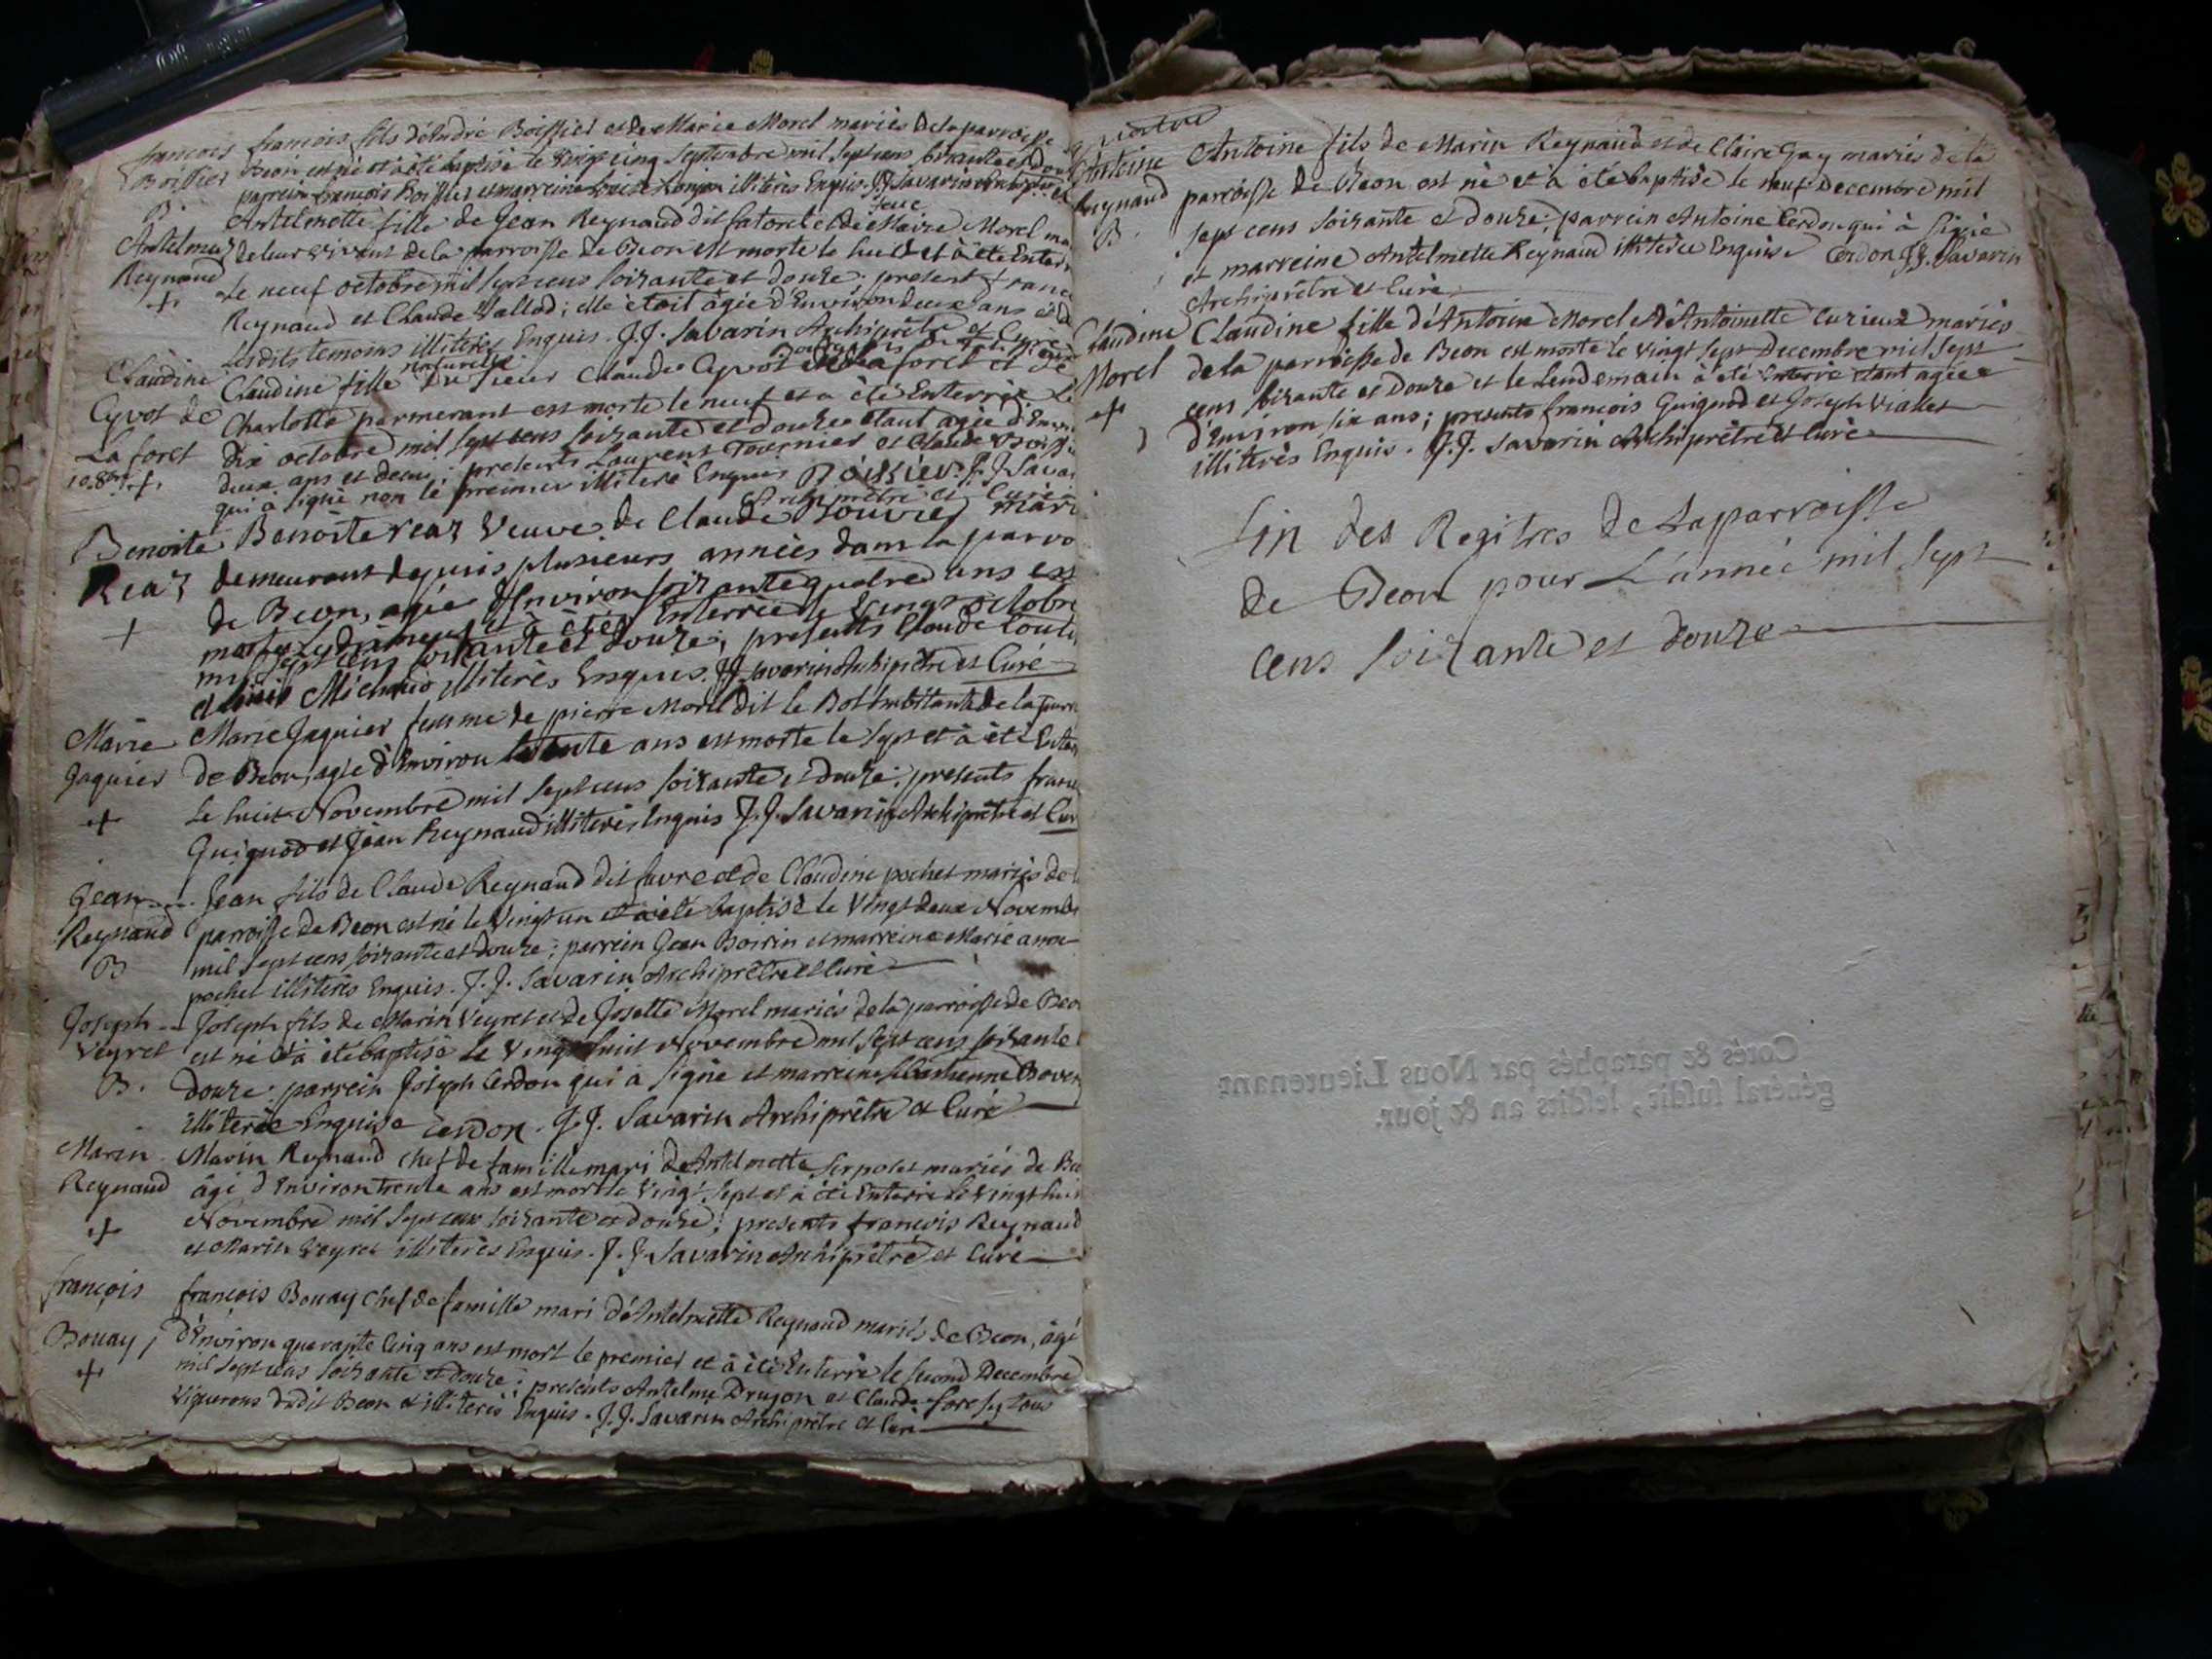 françois françois fils d'André Boissier et de Marie Morel mariés de la parroisse
Boissier Beon est né et à été baptisé le Vingt cinq Septembre mil Sept cens soixante et douze
parrein françois Boissier et marreine illiterés Enquis. J.J. Savarin
B.
Antelmette fille de Jean Reynaud dit et de feue Marie Morel
de leur vivant de la parroisse de Beon est morte le huit et à été Enter
Reynaud le neuf octobre mil Sept cens soixante et douze; present franc
+ Reynaud et Claude Vallod; elle etoit âgée d'Environ deux ans
Lesdits temoins illiterés Enquis. J.J. Savarin Archiprêtre et Curé
Claudine Claudine fille du sieur Claude Cyvot de La foret et de
Cyvot de Charlotte parmerant est morte le neuf et à été Enterrée Le
La foret dix octobre mil Sept cens soixante et douze etant agée d'Env
+ deux ans et demi; presents Laurent Tournier et Claude Boissie
qui à signé non le premier illiteré Enquis Boissier. J.J. Sava
Archiprêtre et Curé
Benoite Benoite reaz Veuve de Claude Bouvier
Reaz demeurant depuis plusieurs années dans la parro
+ de Beon, agée d'Environ soixante quatre ans est
morte le dixneuf et à été Enterrée le Vingt octobre
mil Sept cens soixante et douze; presents Claude
et Michaud illiterés Enquis. J.J. Savarin Archiprêtre et Curé
Marie Marie Jaquier femme de pierre Morel dit le Bot habitante de la parr
Jaquier de Beon, agée d'Environ ans est morte le Sept et à été Enter
+ Le huit Novembre mil Sept cens soixante et douze; presents franc
Guignod et Jean Reynaud illiterés Enquis J.J. Savarin Archiprêtre et Cur
Jean Jean fils de Claude Reynaud dit favre et de Claudine pochet mariés de
Reynaud parroisse de Beon est né le Vingt un et à été baptisé le Vingt deux Novemb
B mil Sept cens soixante et douze; parrein Jean Boirin et marreine Marie anne
pochet illiterés Enquis. J.J. Savarin Archiprêtre et Curé
Joseph Joseph fils de Marin Veyret et de Josette Morel mariés de la parroisse de Beo
Veyret est né et à été baptisé le Vingt huit Novembre mil Sept cens soixante
B. douze: parrein Joseph Cerdon qui à signé et marreine
illiterée Enquise Cerdon. J.J. Savarin Archiprêtre et Curé
Marin Marin Reynaud chef de famille mari de Antelmette Serpolet mariés de Be
Reynaud âgé d'Environ trente ans est mort le Vingt Sept et à été Enterré le Vingt hui
+ Novembre mil Sept cens soixante et douze; presents françois Reynaud
et Marin Veyret illiterés Enquis. J.J. Savarin Archiprêtre et Curé
françois françois Bouay chef de famille mari d'Antelmette Reynaud mariés de Beon, âgé
Bouay d'Environ quarante Cinq ans est mort le premier et à été Enterré le second Decembre
+ mil Sept cens soixante et douze; presents Antelme Drugon et Claude tous
Vignerons dudit Beon et illiterés Enquis. J.J. Savarin Archiprêtre et Curé
Antoine Antoine fils de Marin Reynaud et de Claire Gay mariés de la
Reynaud parroisse de Beon est né et à été baptisé le neuf Decembre mil
B. Sept cens soixante et douze; parrein Antoine Cerdon qui à signé
et marreine Antelmette Reynaud illiterée Enquise Cerdon J.J. Savarin
Archiprêtre et Curé
Claudine Claudine fille d'Antoine Morel et d'Antoinette Curieux mariés
Morel de la parroisse de Beon est morte le vingt Sept Decembre mil Sept
+ cens soixante et douze et le Lendemain à été Enterré etant agée
d'Environ six ans; presents françois Guignod et Joseph Viallet
illiterés Enquis. J.J. Savarin Archiprêtre et Curé
Fin des Regitres de La parroisse
de Beon pour L'année mil Sept
cens soixante et douze
Cotés & paraphés par Nous Lieutenant
général susdit, lesdits an & jour.